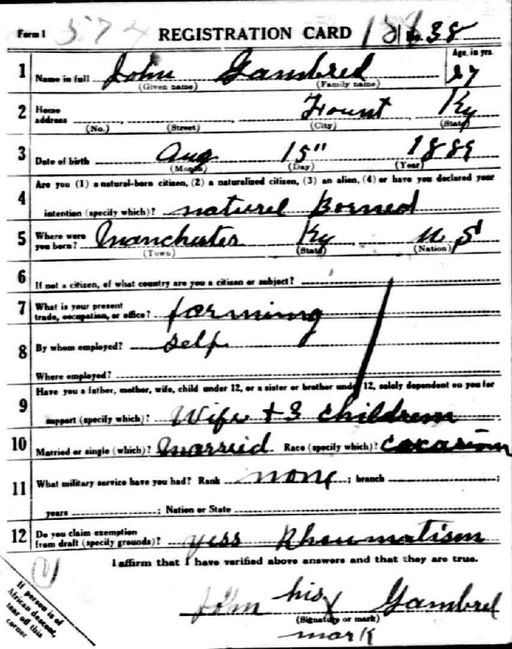 Form 1 574 REGISTRATION CARD No. 38
Age, in yrs.
1 Name in full John Gambred 27
(Given name) (Family name)
2 Home address Fount Ky
(No.) (Street) (City) (State)
3 Date of birth Aug 15" 1889
(Month) (Day) (Year)
4 Are you (1) a natural-born citizen, (2) a naturalized citizen, (3) an alien, (4) or have you declared your
intention (specify which)? naturel Borned
5 Where were you born? Manchester Ky U S
(Town) (State) (Nation)
6 If not a citizen, of what country are you a citizen or subject?
7 What is your present trade, occupation, or office? farming
8 By whom employed? self
Where employed?
9 Have you a father, mother, wife, child under 12, or a sister or brother under 12, solely dependent on you for
support (specify which)? Wife + 3 children
10 Married or single (which)? Married Race (specify which)?
11 What military service have you had? Rank none ; branch ;
years ; Nation or State
12 Do you claim exemption from draft (specify grounds)? yess Rheumatism
I affirm that I have verified above answers and that they are true.
If person is of
African descent,
tear off this
corner
John his x Gambrel
(Signature or mark)
mark